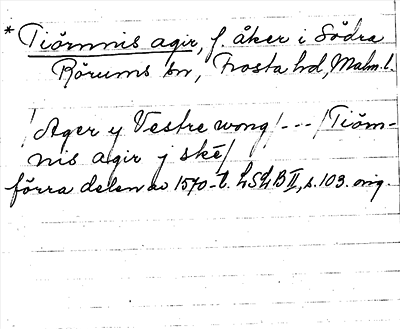 * Tiörnnis agir, f. åker i Södra
Rörums sn, Frosta hd, Malm. l.
/Ager y Vestre wong/ --- /Tiörn-
nis agir j ské/
förra delen av 1570-t. LSLB II, s. 103. orig.